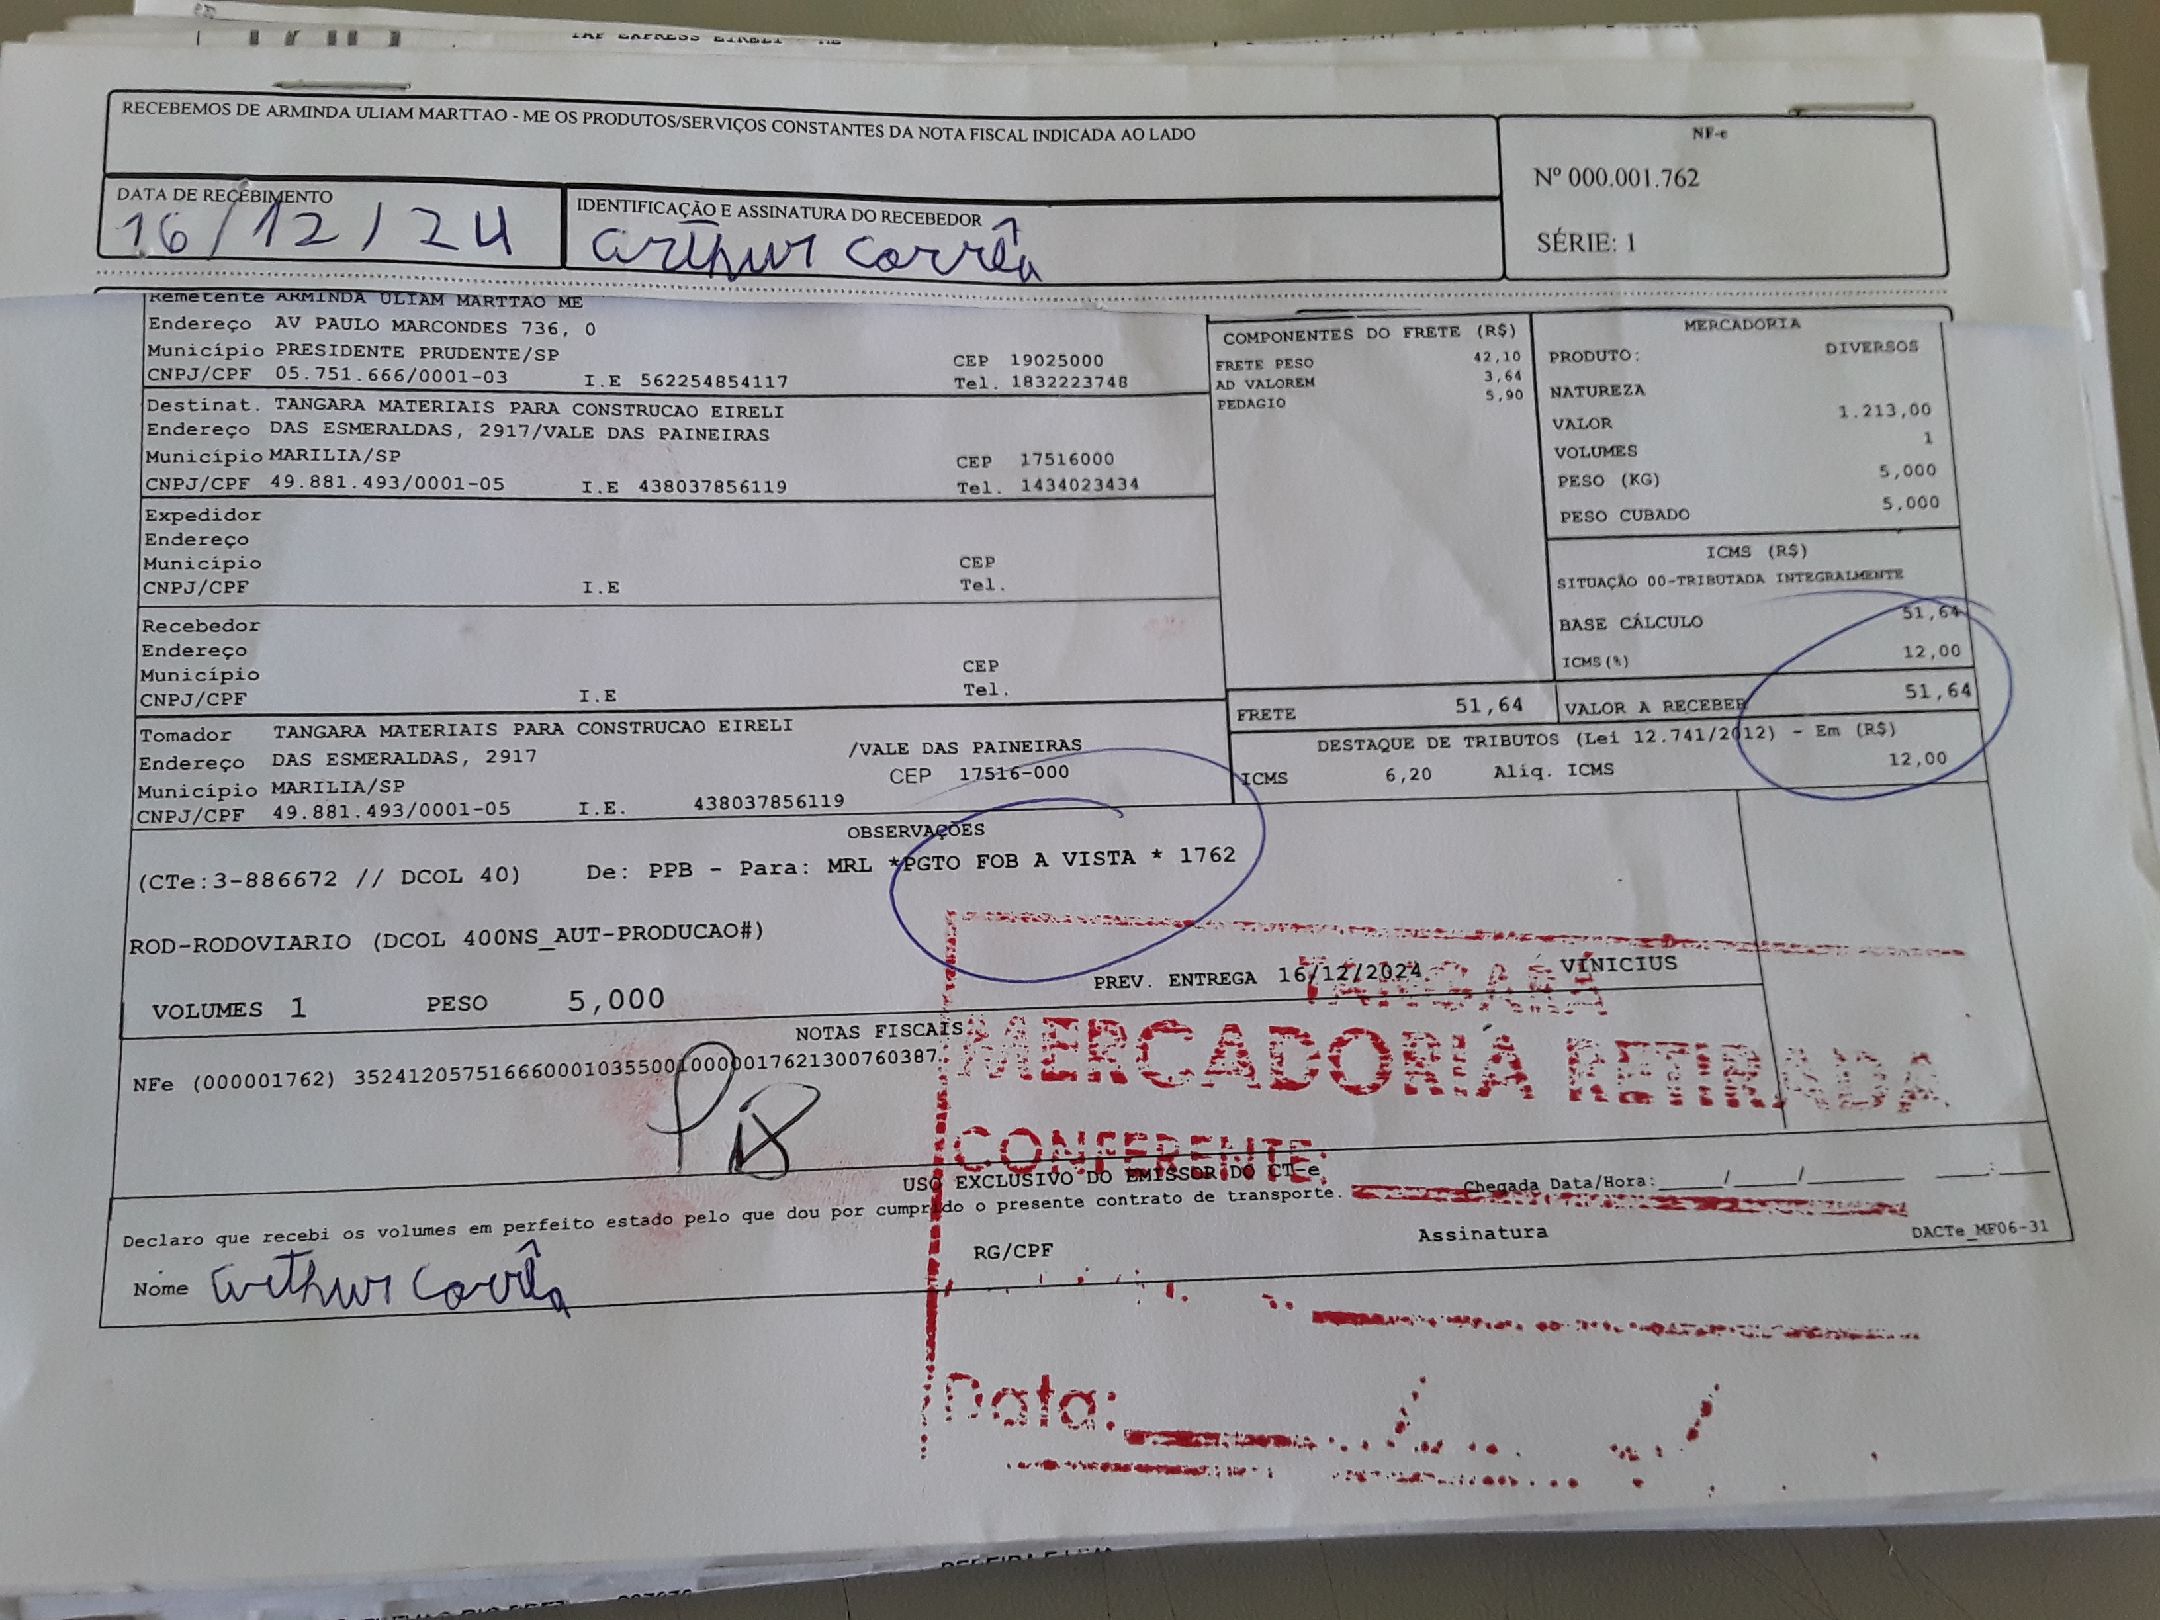 RECEBEMOS DE ARMINDA ULIAM MARTTAO - ME OS PRODUTOS/SERVIÇOS CONSTANTES DA NOTA FISCAL INDICADA AO LADO
NF-e
Nº 000.001.762
SÉRIE: 1
DATA DE RECEBIMENTO
16/12/24
IDENTIFICAÇÃO E ASSINATURA DO RECEBEDOR
Arthur Corrêa
Remetente ARMINDA ULIAM MARTTAO ME
Endereço AV PAULO MARCONDES 736, 0
Município PRESIDENTE PRUDENTE/SP CEP 19025000
CNPJ/CPF 05.751.666/0001-03 I.E 562254854117 Tel. 1832223748
Destinat. TANGARA MATERIAIS PARA CONSTRUCAO EIRELI
Endereço DAS ESMERALDAS, 2917/VALE DAS PAINEIRAS
Município MARILIA/SP CEP 17516000
CNPJ/CPF 49.881.493/0001-05 I.E 438037856119 Tel. 1434023434
Expedidor
Endereço
Município CEP
CNPJ/CPF I.E Tel.
Recebedor
Endereço
Município CEP
CNPJ/CPF I.E Tel.
Tomador TANGARA MATERIAIS PARA CONSTRUCAO EIRELI
Endereço DAS ESMERALDAS, 2917 /VALE DAS PAINEIRAS
Município MARILIA/SP CEP 17516-000
CNPJ/CPF 49.881.493/0001-05 I.E. 438037856119
COMPONENTES DO FRETE (R$)
FRETE PESO 42,10
AD VALOREM 3,64
PEDAGIO 5,90
MERCADORIA
PRODUTO: DIVERSOS
NATUREZA
VALOR 1.213,00
VOLUMES 1
PESO (KG) 5,000
PESO CUBADO 5,000
ICMS (R$)
SITUAÇÃO 00-TRIBUTADA INTEGRALMENTE
BASE CÁLCULO 51,64
ICMS(%) 12,00
FRETE 51,64 VALOR A RECEBER 51,64
DESTAQUE DE TRIBUTOS (Lei 12.741/2012) - Em (R$)
ICMS 6,20 Alíq. ICMS 12,00
OBSERVAÇÕES
(CTe:3-886672 // DCOL 40) De: PPB - Para: MRL *PGTO FOB A VISTA * 1762
ROD-RODOVIARIO (DCOL 400NS_AUT-PRODUCAO#)
PREV. ENTREGA 16/12/2024 VINICIUS
VOLUMES 1 PESO 5,000
NOTAS FISCAIS
NFe (000001762) 35241205751666000103550010000017621300760387
TANGARÁ
MERCADORIA RETIRADA
CONFERENTE:
USO EXCLUSIVO DO EMISSOR DO CT-e
Chegada Data/Hora:_____/_____/_______ ___:____
Declaro que recebi os volumes em perfeito estado pelo que dou por cumprido o presente contrato de transporte.
Nome Arthur Corrêa
RG/CPF
Assinatura
DACTe_MF06-31
Data: ____/____/